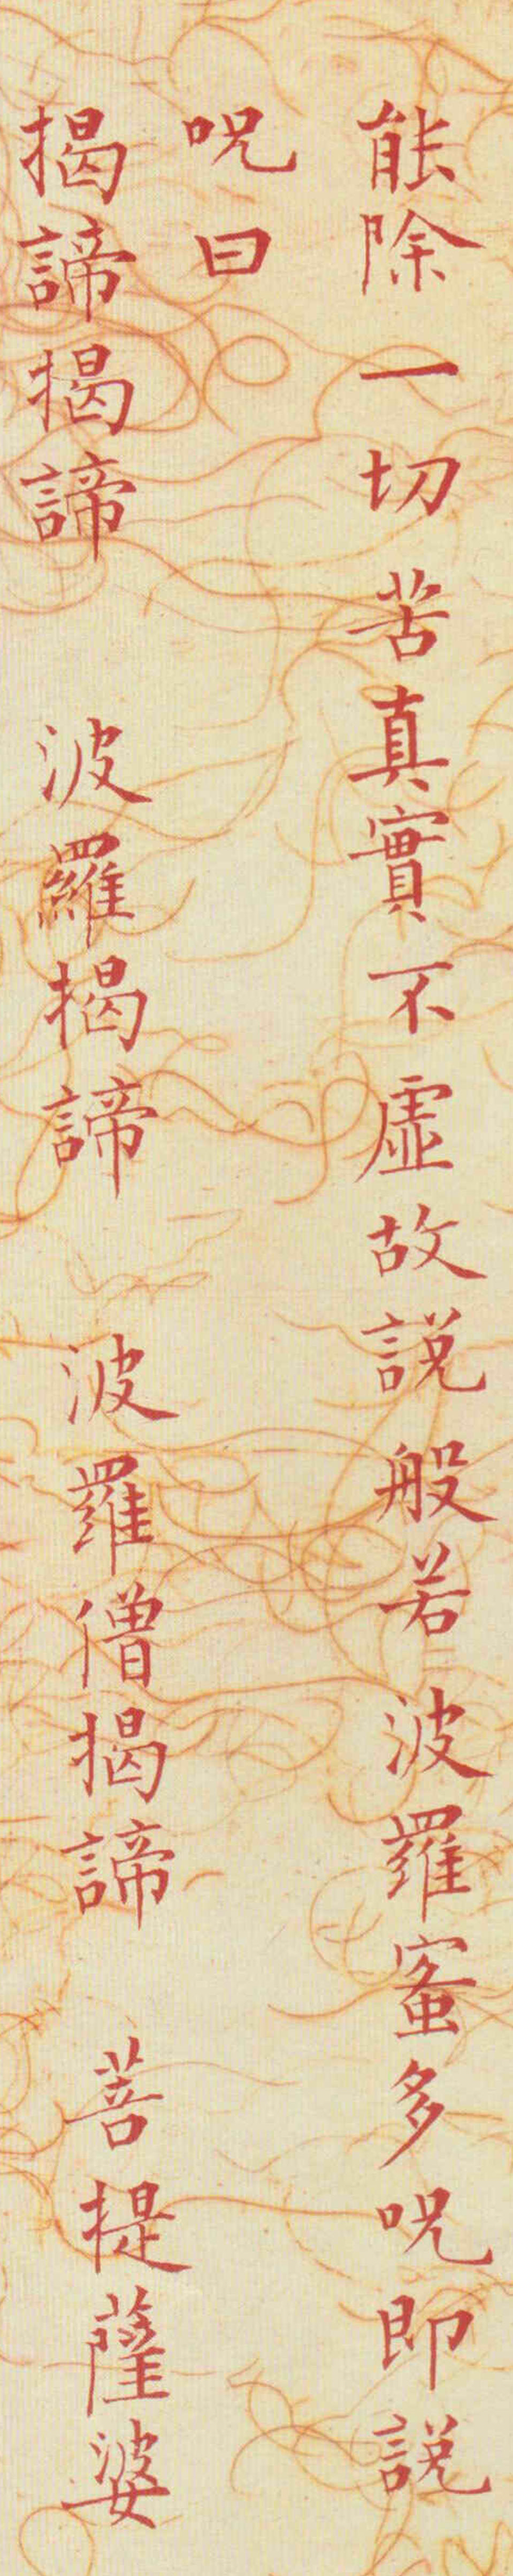 能除一切苦真實不虛故說般若波羅蜜多呪即說
呪曰
揭諦揭諦 波羅揭諦 波羅僧揭諦 菩提薩婆